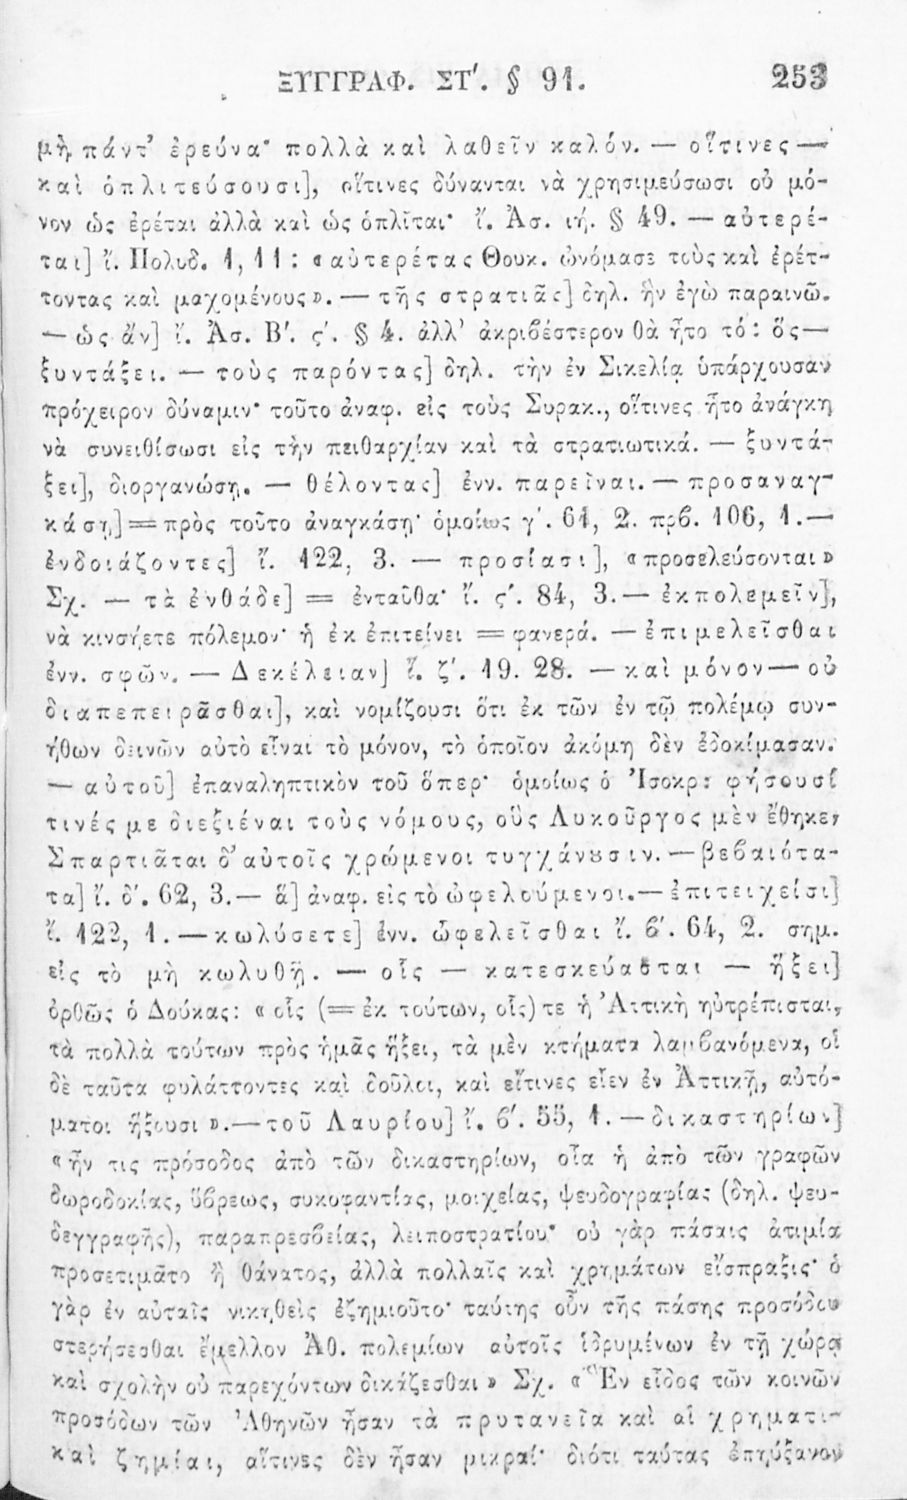 ΞΥΓΓΡΑΦ. ΣΤ′. § 91. 253
μὴ πάντ’ ἐρεύνα· πολλὰ καὶ λαθεῖν καλόν. — οἵτινες —
καὶ ὁπλιτεύσουσι], οἵτινες δύνανται νὰ χρησιμεύσωσι οὐ μό-
νον ὡς ἐρέται ἀλλὰ καὶ ὡς ὁπλῖται· ἴ. Ἀσ. ιή. § 49. — αὐτερέ-
ται] ἴ. Πολυδ. 1, 11 : «αὐτερέτας Θουκ. ὠνόμασε τοὺς καὶ ἐρέτ-
τοντας καὶ μαχομένους». — τῆς στρατιᾶς] δηλ. ἣν ἐγὼ παραινῶ.
— ὡς ἂν] ἴ. Ἀσ. Β′. ς′. § 4. ἀλλ’ ἀκριβέστερον θὰ ἦτο τό : ὃς —
ξυντάξει. — τοὺς παρόντας] δηλ. τὴν ἐν Σικελίᾳ ὑπάρχουσαν
πρόχειρον δύναμιν· τοῦτο ἀναφ. εἰς τοὺς Συρακ., οἵτινες ἦτο ἀνάγκη
νὰ συνειθίσωσι εἰς τὴν πειθαρχίαν καὶ τὰ στρατιωτικά. — ξυντά-
ξει], διοργανώσῃ. — θέλοντας] ἐνν. παρεῖναι. — προσαναγ-
κάσῃ] = πρὸς τοῦτο ἀναγκάσῃ· ὁμοίως γ′. 61, 2. πρβ. 106, 1. —
ἐνδοιάζοντες] ἴ. 122, 3. — προσίασι], «προσελεύσονται»
Σχ. — τὰ ἐνθάδε] = ἐνταῦθα· ἴ. ς′. 84, 3. — ἐκπολεμεῖν],
νὰ κινσήετε πόλεμον· ἡ ἐκ ἐπιτείνει = φανερά. — ἐπιμελεῖσθαι
ἐνν. σφῶν. — Δεκέλειαν] ἴ. ζ′. 19. 28. — καὶ μόνον — οὐ
διαπεπειρᾶσθαι], καὶ νομίζουσι ὅτι ἐκ τῶν ἐν τῷ πολέμῳ συν-
ήθων δεινῶν αὐτὸ εἶναι τὸ μόνον, τὸ ὁποῖον ἀκόμη δὲν ἐδοκίμασαν.
— αὐτοῦ] ἐπαναληπτικὸν τοῦ ὅπερ· ὁμοίως ὁ Ἰσοκρ: φήσουσί
τινές με διεξιέναι τοὺς νόμους, οὓς Λυκοῦργος μὲν ἔθηκε,
Σπαρτιᾶται δ’ αὐτοῖς χρώμενοι τυγχάνȣσιν. — βεβαιότα-
τα] ἴ. δ′. 62, 3. — ἃ] ἀναφ. εἰς τὸ ὠφελούμενοι. — ἐπιτειχείσι]
ἴ. 122, 1. — κωλύσετε] ἐνν. ὠφελεῖσθαι ἴ. β′. 64, 2. σημ.
εἰς τὸ μὴ κωλυθῇ. — οἷς — κατεσκεύασται — ἥξει]
ὀρθῶς ὁ Δούκας: «οἷς (= ἐκ τούτων, οἷς) τε ἡ Ἀττικὴ ηὐτρέπισται,
τὰ πολλὰ τούτων πρὸς ἡμᾶς ἥξει, τὰ μὲν κτήματα λαμβανόμενα, οἱ
δὲ ταῦτα φυλάττοντες καὶ δοῦλοι, καὶ εἴτινες εἶεν ἐν Ἀττικῇ, αὐτό-
ματοι ἥξουσι». — τοῦ Λαυρίου] ἴ. β′. 55, 1. — δικαστηρίων]
«ἦν τις πρόσοδος ἀπὸ τῶν δικαστηρίων, οἵα ἡ ἀπὸ τῶν γραφῶν
δωροδοκίας, ὕβρεως, συκοφαντίας, μοιχείας, ψευδογραφίας (δηλ. ψευ-
δεγγραφῆς), παραπρεσβείας, λειποστρατίου· οὐ γὰρ πάσαις ἀτιμία
προσετιμᾶτο ἢ θάνατος, ἀλλὰ πολλαῖς καὶ χρημάτων εἴσπραξις· ὁ
γὰρ ἐν αὐταῖς νικηθεὶς ἐζημιοῦτο· ταύτης οὖν τῆς πάσης προσόδου
στερήσεσθαι ἔμελλον Ἀθ. πολεμίων αὐτοῖς ἱδρυμένων ἐν τῇ χώρᾳ
καὶ σχολὴν οὐ παρεχόντων δικάζεσθαι» Σχ. «Ἓν εἶδος τῶν κοινῶν
προσόδων τῶν Ἀθηνῶν ἦσαν τὰ πρυτανεῖα καὶ αἱ χρηματι-
καὶ ζημίαι, αἵτινες δὲν ἦσαν μικραί· διότι ταύτας ἐπηύξανον